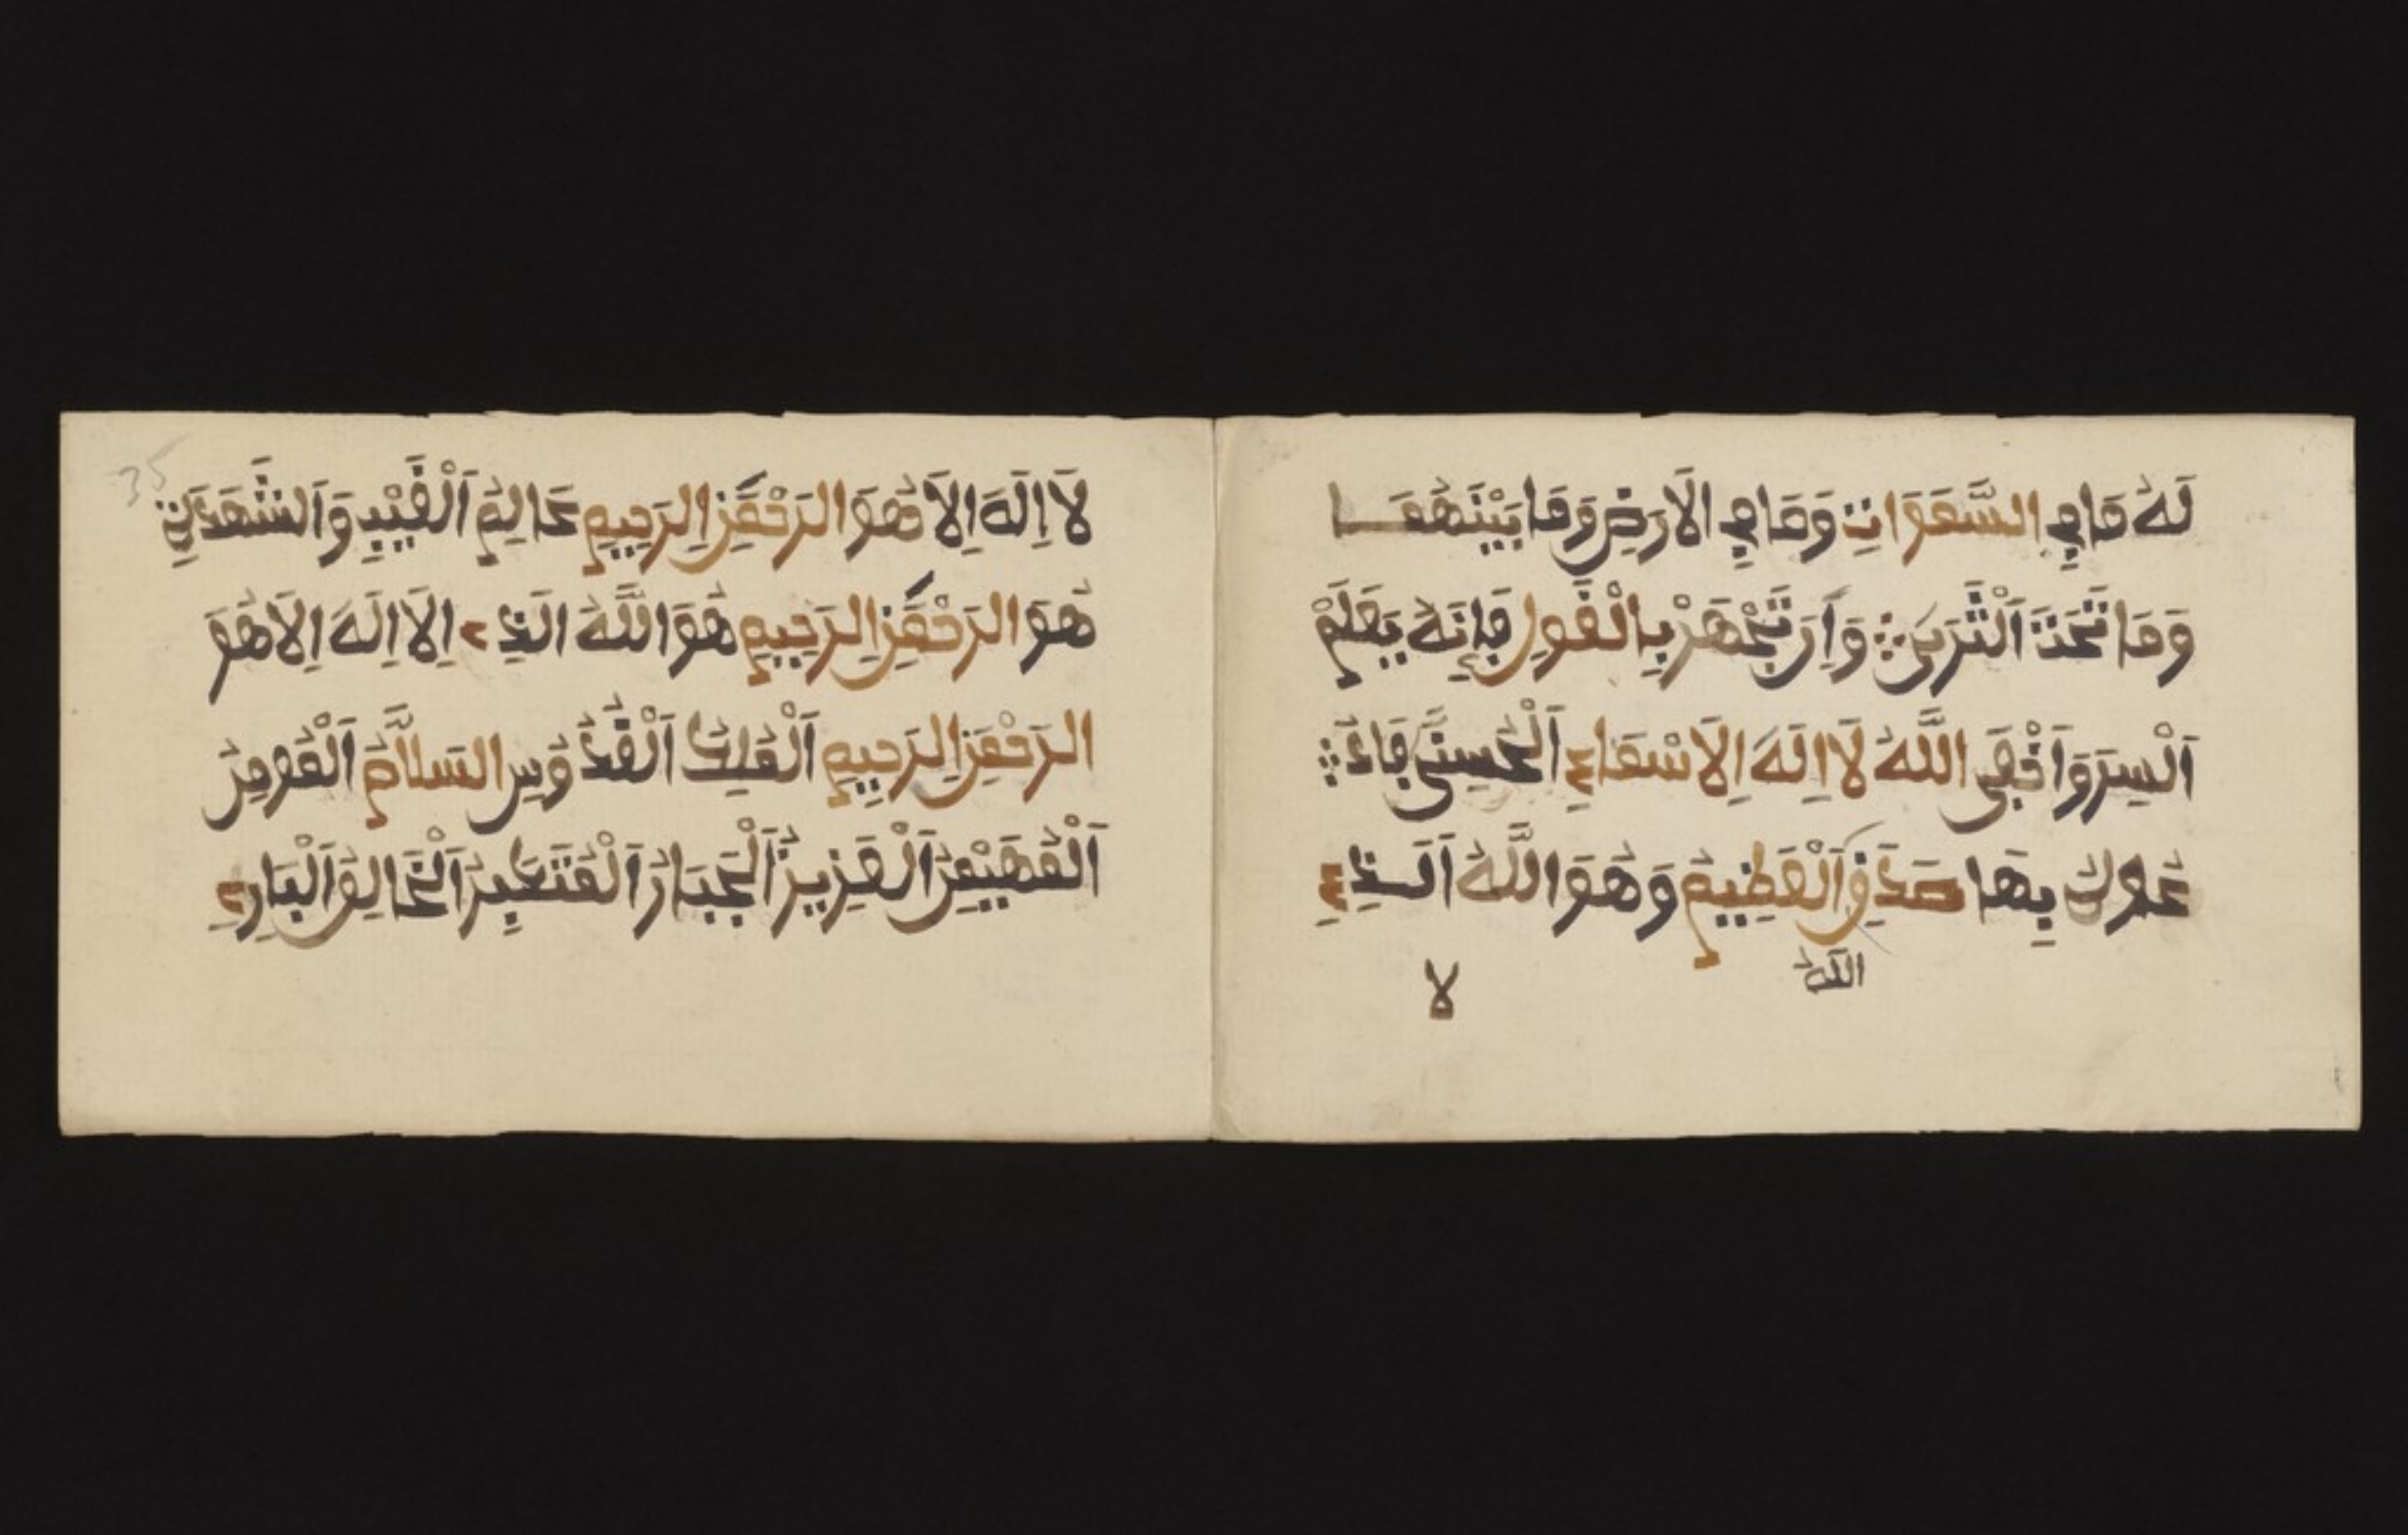 لَهُ مَا فِي السَّمَوَاتِ وَمَا فِي الَارْضِ وَمَا بَيْنَهُمَا
وَمَا تَحْتَ اَلْثَّرَىٰ وَاِن تَجْهَرْ بِالْقَوْلِ فَاِنَّهُ يَعْلَمُ
اَلْسِرَ وَاَخْفَى اللَّهُ لَا اِلَهَ اِلَا سْمَاءِ اَلْحُسْنَى فَادْعُ
عُوكَ بِهَا صَدَقَ اَلْعَظِيمُ وَهُوَ اللَّهُ اَلَّذِي
الله
لا
35
لَا اِلَهَ اِلَا هُوَ الرَحْمَنِ الرَحِيمِ عَالِمُ اَلْغَيْبِ وَاَلشَّهَدَةِ
هُوَ الرَحْمَنِ الرَحِيمِ هُوَ اللَّهُ الَذِي اِلَا اِلَهَ اِلَا هُوَ
الرَحْمَنِ الرَحِيمِ اَلْمَلِكُ اَلْقُدُّوسِ السَلَامُ اَلْمُومِنُ
اَلْمُهَيْمِنُ اَلْعَزِيزُ اَلْجَبَارُ اَلْمُتَكَبِرُ اَلْخَالِقُ اَلْبَارِئُ